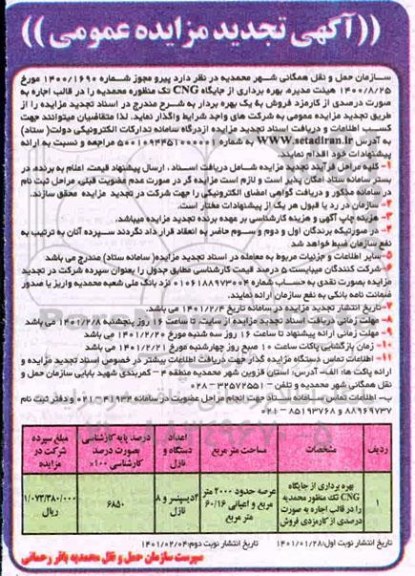 ((آگهی تجدید مزایده عمومی))
سازمان حمل و نقل همگانی شهر محمدیه در نظر دارد پیرو مجوز شماره ۱۴۰۰/۱۶۹۰ مورخ
۱۴۰۰/۸/۲۵ هیئت مدیره، بهره برداری از جایگاه CNG تک منظوره محمدیه را در قالب اجاره به
صورت درصدی از کارمزد فروش به یک بهره بردار به شرح مندرج در اسناد تجدید مزایده را از
طریق تجدید مزایده عمومی به شرکت های واجد شرایط واگذار نماید. لذا متقاضیان میتوانند جهت
کسب اطلاعات و دریافت اسناد تجدید مزایده ازدرگاه سامانه تدارکات الکترونیکی دولت( ستاد)
به آدرس www.setadiran.ir به شماره مراجعه و نسبت به ارائه
پیشنهادات خود اقدام نمایند.
۱- کلیه مراحل فرآیند تجدید مزایده شامل دریافت اسناد ، ارسال پیشنهاد قیمت، اعلام به برنده، در
بستر سامانه ستاد امکان پذیر است و لازم است مزایده گر در صورت عدم عضویت قبلی، مراحل ثبت نام
در سامانه مذکور و دریافت گواهی امضای الکترونیکی را جهت شرکت در تجدید مزایده محقق سازند.
۲- سازمان در رد یا قبول هر یک از پیشنهادات مختار است.
۳- هزینه چاپ آگهی و هزینه کارشناسی بر عهده برنده تجدید مزایده میباشد.
۴- در صورتیکه برندگان اول و دوم و سوم حاضر به انعقاد قرار داد نگردند سپرده آنان به ترتیب به
نفع سازمان ضبط خواهد شد
۵- سایر اطلاعات و جزئیات مربوط به معامله در اسناد تجدید مزایده( سامانه ستاد) مندرج می باشد
۶- شرکت کنندگان میبایست ۵ درصد قیمت کارشناسی مطابق جدول را بعنوان سپرده شرکت در تجدید
مزایده بصورت نقدی به حساب شماره ۰۱۰۶۱۸۸۹۷۳۰۰۴ نزد بانک ملی شعبه محمدیه واریز یا صدور
ضمانت نامه بانکی به نفع سازمان ارائه نمایند.
۷- تاریخ انتشار تجدید مزایده در سامانه تاریخ ۱۴۰۱/۲/۴ می باشد.
۸- مهلت زمانی دریافت اسناد تجدید مزایده از سایت تا ساعت ۱۶ روز پنجشنبه ۱۴۰۱/۲/۸ می باشد
۹- مهلت زمانی ارائه پیشنهاد تا ساعت ۱۶ روز سه شنبه مورخ ۱۴۰۱/۲/۲۰ می باشد
۱۰- زمان بازگشایی پاکات ساعت ۱۰ صبح روز چهارشنبه مورخ ۱۴۰۱/۲/۲۱ می باشد
۱۱- اطلاعات تماس دستگاه مزایده گذار جهت دریافت اطلاعات بیشتر در خصوص اسناد تجدید مزایده و
ارائه پاکت ها، الف- آدرس: استان قزوین شهر محمدیه منطقه ۳ – کمربندی شهید بابایی سازمان حمل و
نقل همگانی شهر محمدیه و تلفن – ۳۲۵۷۲۵۵۱ – ۰۲۸
ب- اطلاعات تماس، سامانه ستاد جهت انجام مراحل عضویت در سامانه ۴۱۹۳۴-۰۲۱ و دفتر ثبت نام
۸۸۹۶۹۷۳۷ و ۸۵۱۹۳۷۶۸ - ۰۲۱
ردیف مشخصات مساحت متر مربع اعداد دستگاه و نازل درصد پایه کارشناسی بصورت درصد کارشناسی ۱۰۰٪ مبلغ سپرده شرکت در مزایده
۱ بهره برداری از جایگاه CNG تک منظور محمدیه را در قالب اجاره به صورت درصدی از کارمزدی فروش عرصه حدود ۲۰۰۰ متر مربع و اعیانی ۶۰/۱۶ متر مربع ۴دیسپنسر و ۸ نازل ۶۸۵۰ ۱/۰۷۳/۳۸۰/۰۰۰ ریال
تاریخ انتشار نوبت اول: ۱۴۰۱/۰۱/۲۸ تاریخ انتشار نوبت دوم: ۱۴۰۱/۰۲/۰۴
سرپرست سازمان حمل و نقل محمدیه باقر رحمانی